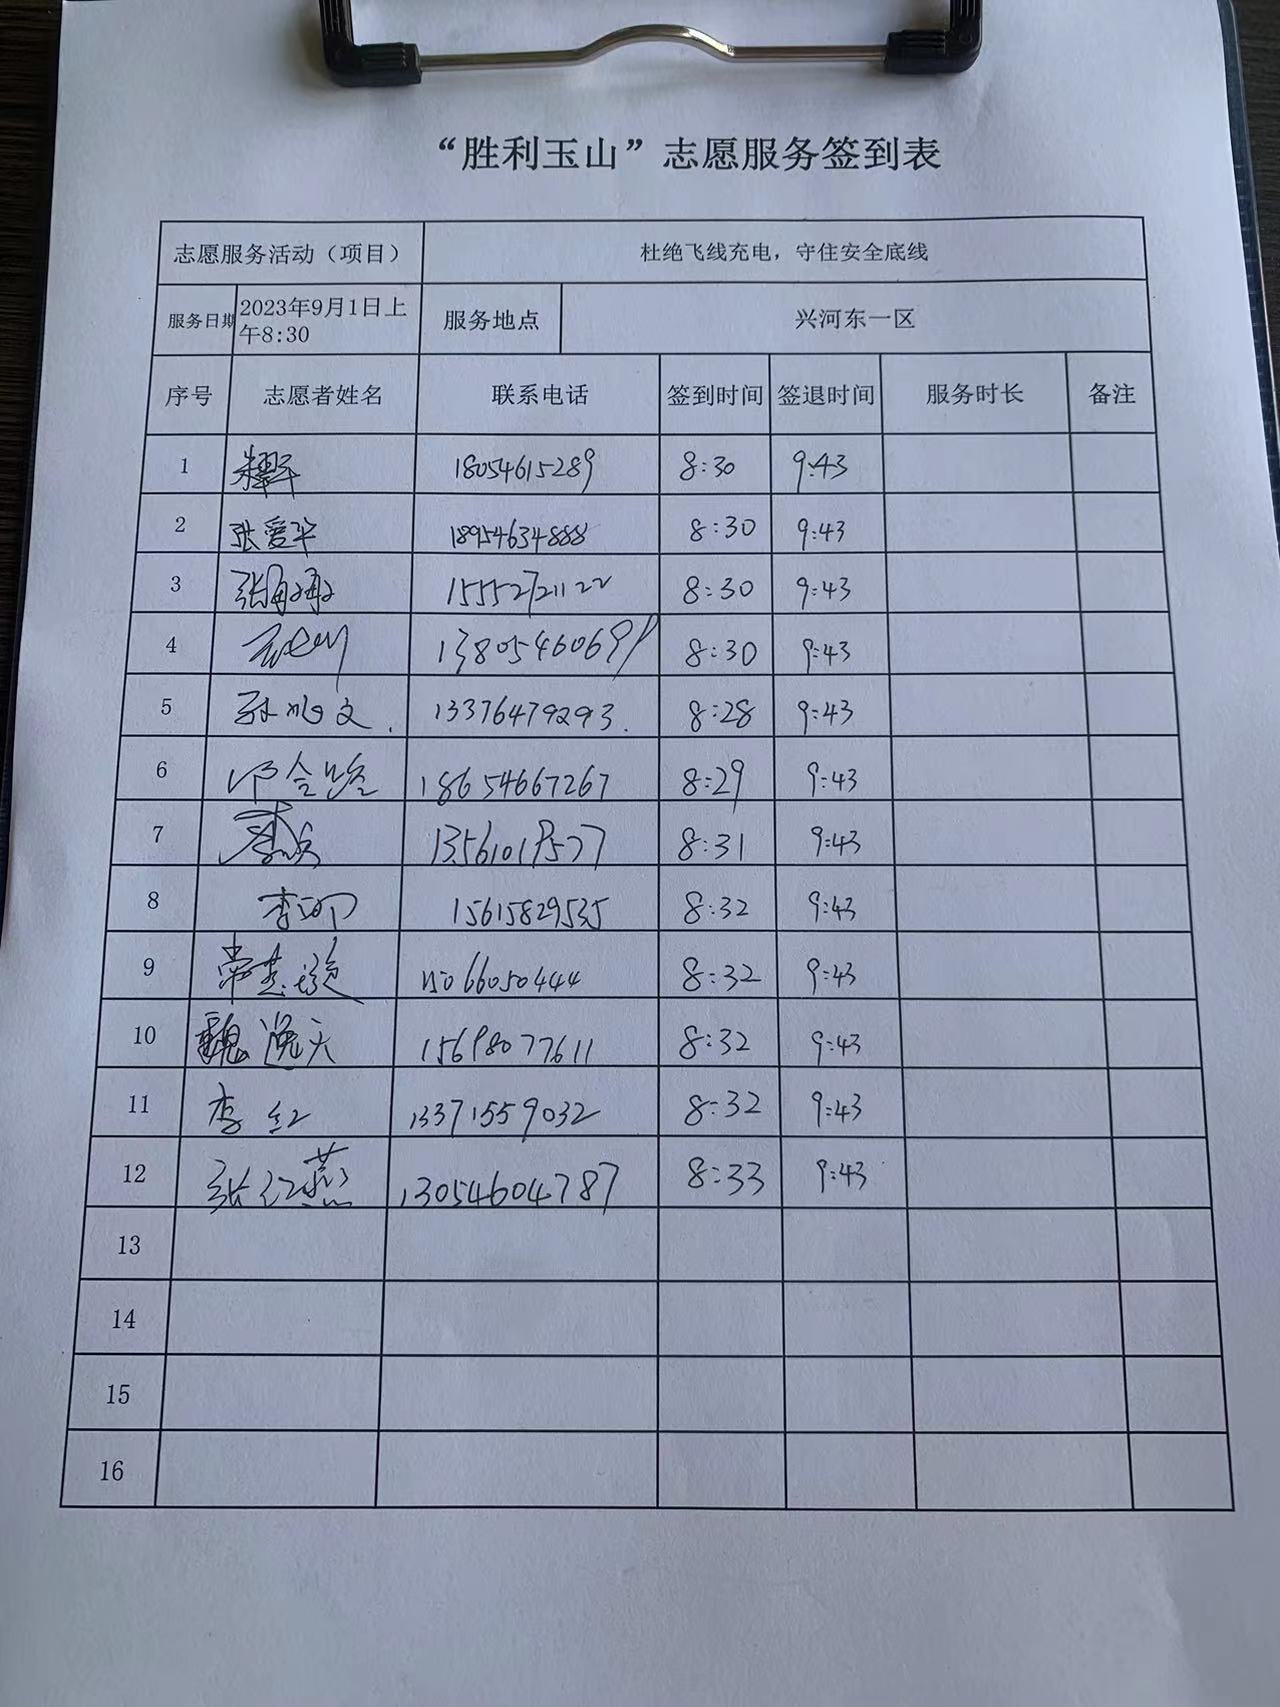 “胜利玉山”志愿服务签到表
志愿服务活动（项目） 杜绝飞线充电，守住安全底线
服务日期 2023年9月1日上午8:30 服务地点 兴河东一区
序号 志愿者姓名 联系电话 签到时间 签退时间 服务时长 备注
1 18054615289 8:30 9:43
2 张爱华 18954634888 8:30 9:43
3 15552721122 8:30 9:43
4 8:30 9:43
5 13376479293. 8:28 9:43
6 18654667267 8:29 9:43
7 8:31 9:43
8 15615829535 8:32 9:43
9 15066050444 8:32 9:43
10 魏逸天 15698077611 8:32 9:43
11 李红 13371559032 8:32 9:43
12 张红燕 13054604787 8:33 9:43
13
14
15
16